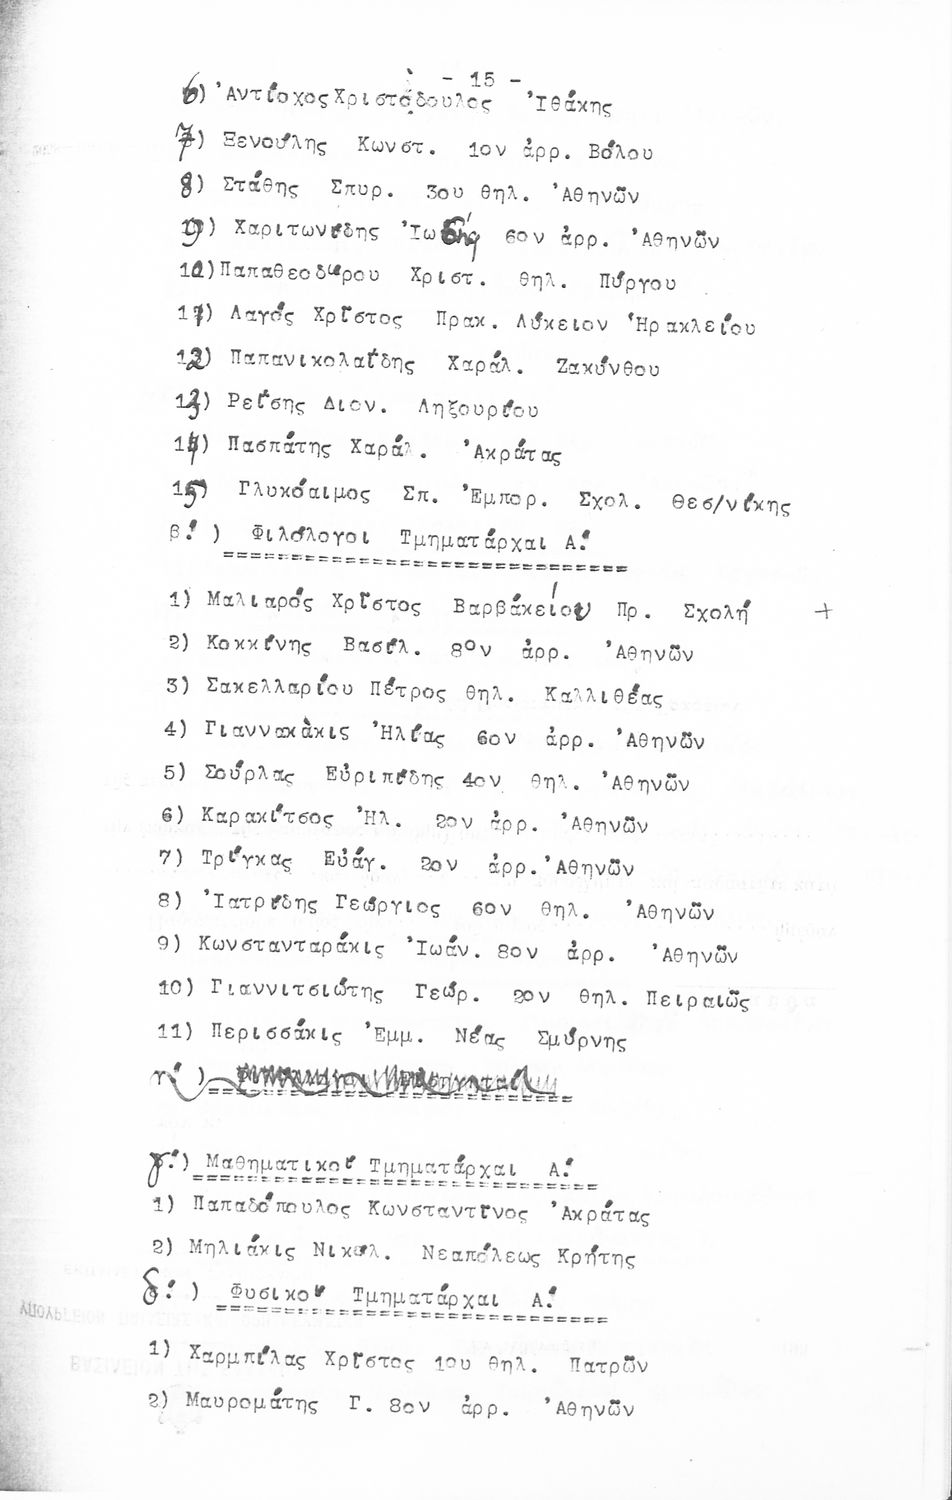 - 15 -
6) Ἀντίοχος Χριστόδουλος Ἰθάκης
7) Ξενούλης Κωνστ. 1ον ἀρρ. Βόλου
8) Στάθης Σπυρ. 3ου θηλ. Ἀθηνῶν
9) Χαριτωνίδης Ἰωσήφ 6ον ἀρρ. Ἀθηνῶν
10) Παπαθεοδώρου Χριστ. θηλ. Πύργου
11) Λαγός Χρῖστος Πρακ. Λύκειον Ἡρακλείου
12) Παπανικολαΐδης Χαράλ. Ζακύνθου
13) Ρεΐσης Διον. Ληξουρίου
14) Πασπάτης Χαράλ. Ἀκράτας
15) Γλυκόαιμος Σπ. Ἐμπορ. Σχολ. Θεσ/νίκης
β΄) Φιλόλογοι Τμηματάρχαι Α΄
1) Μαλιαρός Χρῖστος Βαρβάκειου Πρ. Σχολή +
2) Κοκκίνης Βασίλ. 8ον ἀρρ. Ἀθηνῶν
3) Σακελλαρίου Πέτρος θηλ. Καλλιθέας
4) Γιαννακὰκις Ἠλίας 6ον ἀρρ. Ἀθηνῶν
5) Σούρλας Εὐριπίδης 4ον θηλ. Ἀθηνῶν
6) Καρακίτσος Ἠλ. 2ον ἀρρ. Ἀθηνῶν
7) Τρίγκας Εὐάγ. 2ον ἀρρ. Ἀθηνῶν
8) Ἰατρίδης Γεώργιος 6ον θηλ. Ἀθηνῶν
9) Κωνστανταράκις Ἰωάν. 8ον ἀρρ. Ἀθηνῶν
10) Γιαννιτσιώτης Γεώρ. 2ον θηλ. Πειραιῶς
11) Περισσάκις Ἐμμ. Νέας Σμύρνης
γ΄)
γ΄) Μαθηματικοί Τμηματάρχαι Α΄
1) Παπαδόπουλος Κωνσταντῖνος Ἀκράτας
2) Μηλιάκις Νικολ. Νεαπόλεως Κρήτης
δ΄) Φυσικοί Τμηματάρχαι Α΄
1) Χαρμπίλας Χρῖστος 1ου θηλ. Πατρῶν
2) Μαυρομάτης Γ. 8ον ἀρρ. Ἀθηνῶν